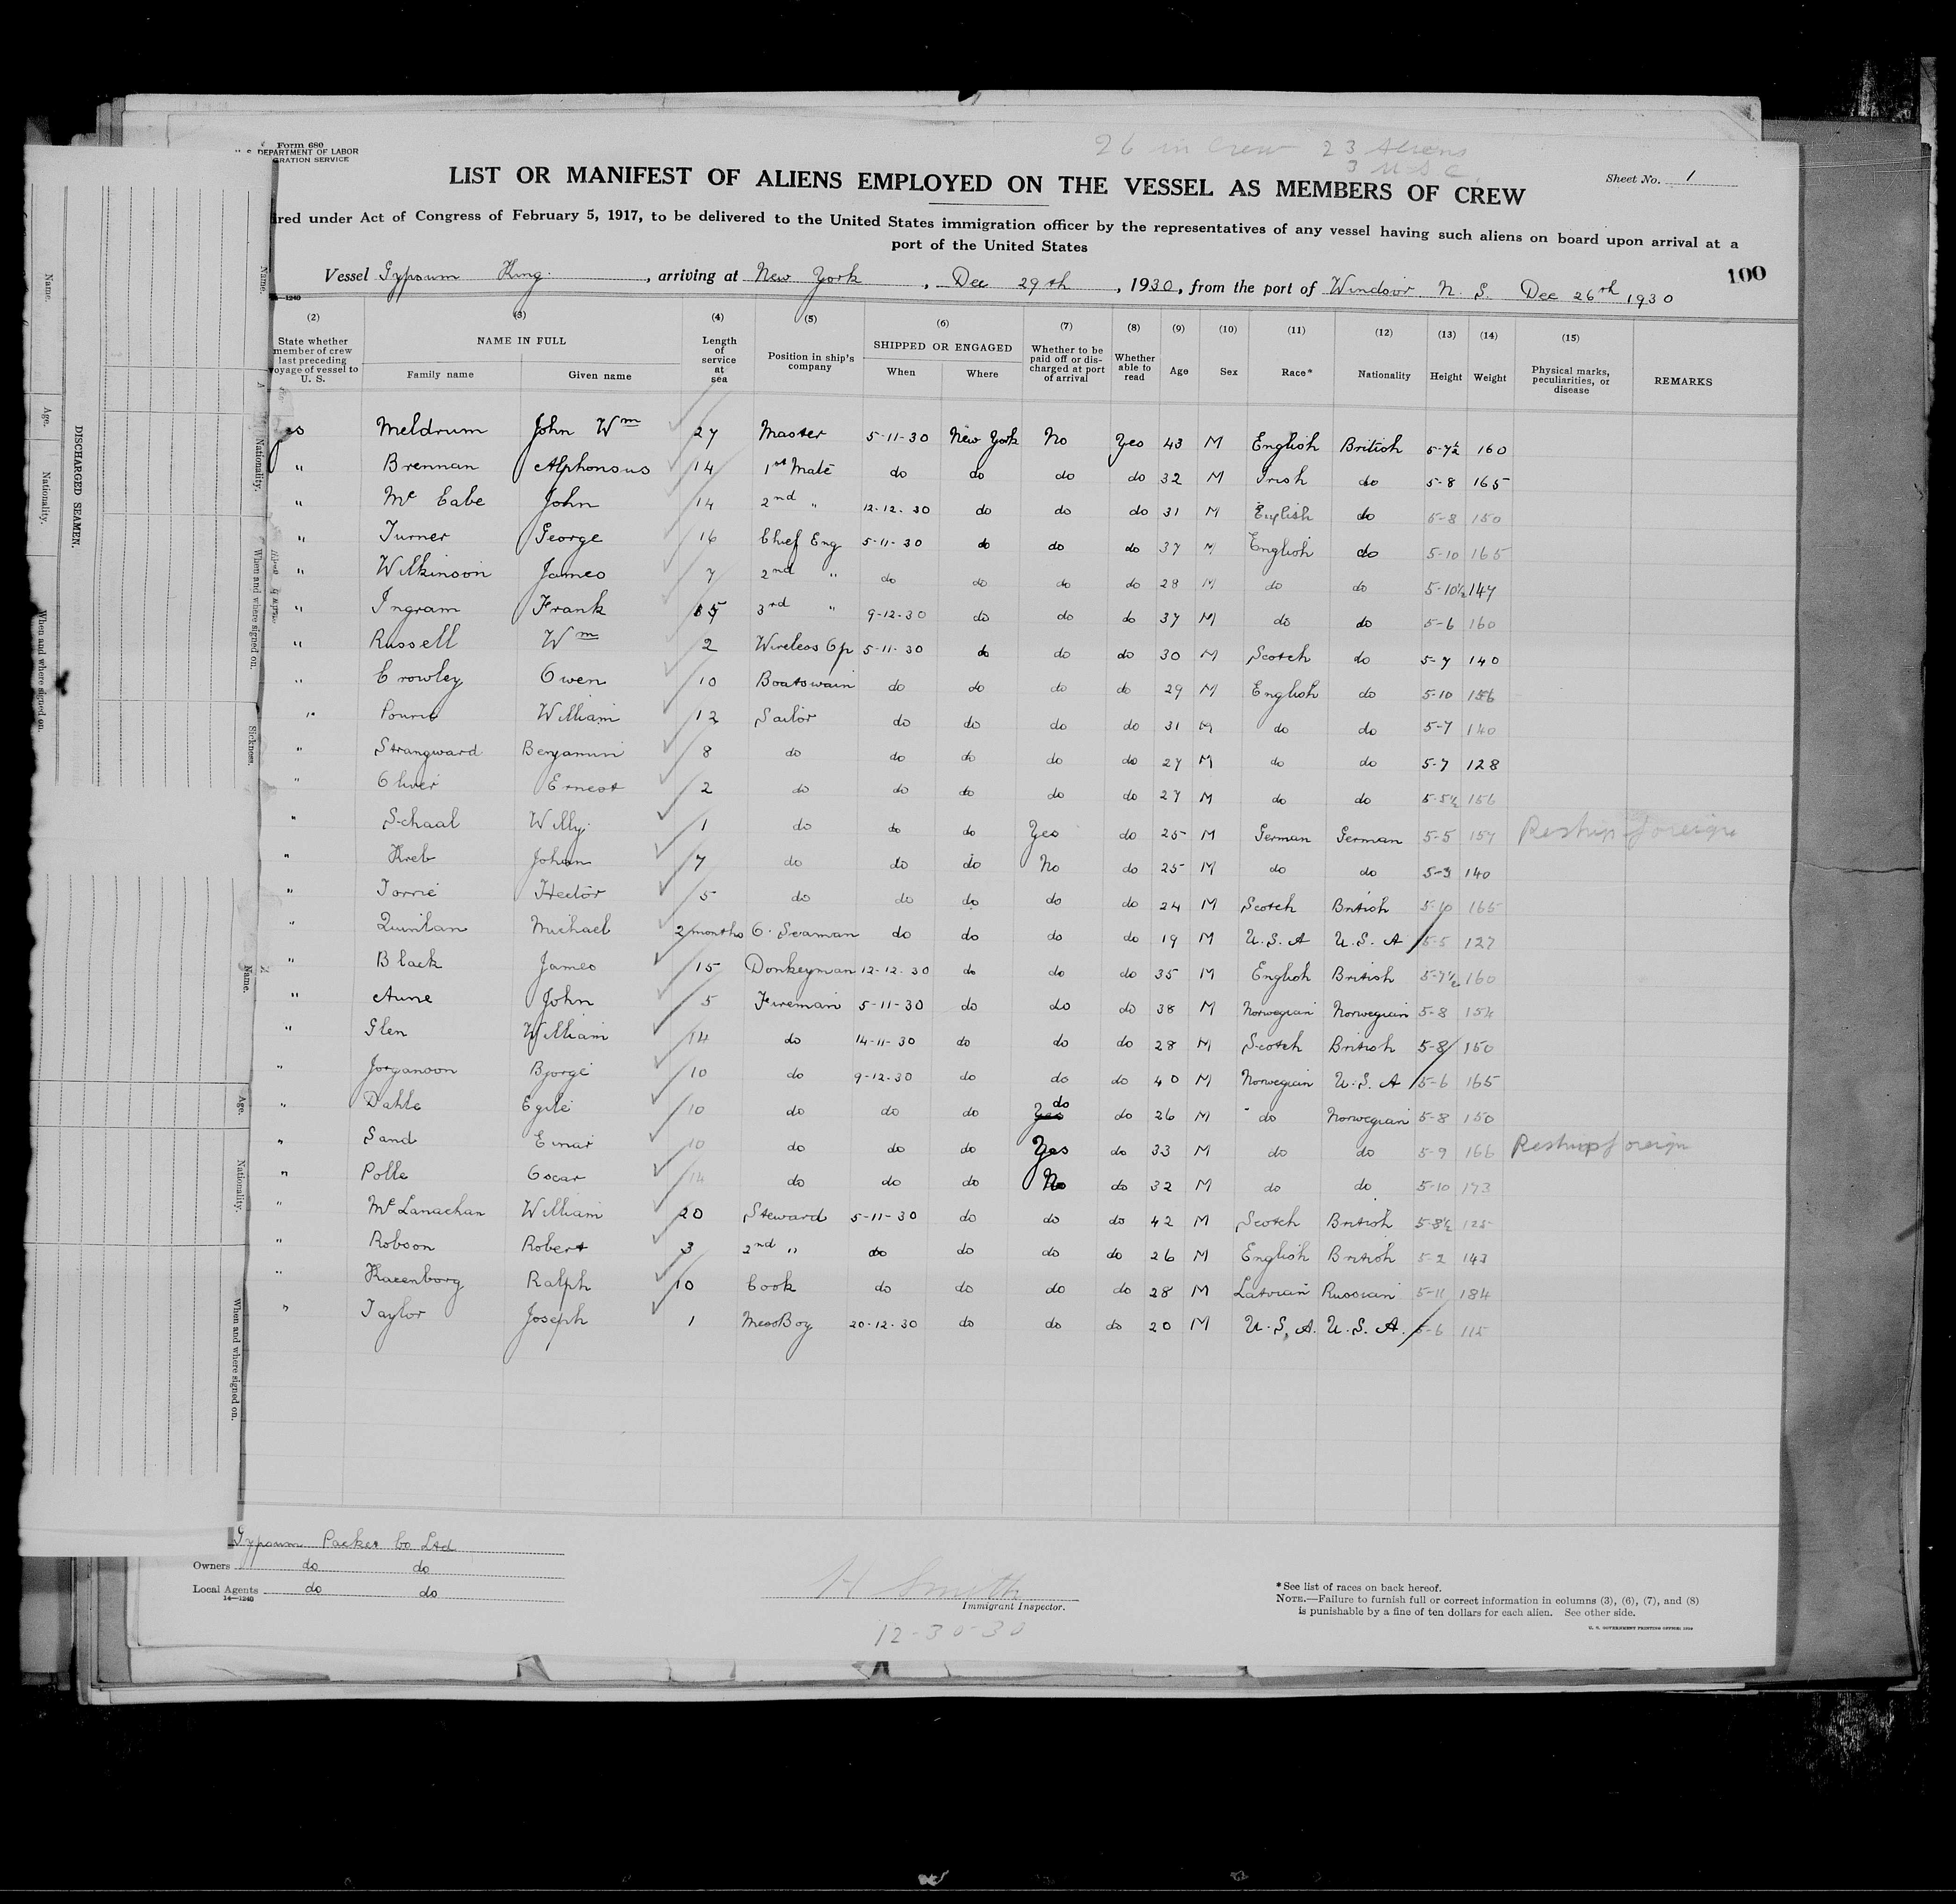 Form 680
U. S. DEPARTMENT OF LABOR
GRATION SERVICE
26 in Crew 23 Aliens
3 U S C.
LIST OR MANIFEST OF ALIENS EMPLOYED ON THE VESSEL AS MEMBERS OF CREW
Sheet No. 1
ired under Act of Congress of February 5, 1917, to be delivered to the United States immigration officer by the representatives of any vessel having such aliens on board upon arrival at a
port of the United States
Vessel Gypsum King, arriving at New York, Dec 29th, 1930, from the port of Windsor N. S. Dec 26th 1930
100
14—1240
(2) (3) (4) (5) (6) (7) (8) (9) (10) (11) (12) (13) (14) (15)
State whether member of crew last preceding voyage of vessel to U. S. NAME IN FULL Family name Given name Length of service at sea Position in ship's company SHIPPED OR ENGAGED When Where Whether to be paid off or discharged at port of arrival Whether able to read Age Sex Race* Nationality Height Weight Physical marks, peculiarities, or disease REMARKS
yes Meldrum John Wm 27 Master 5-11-30 New York No Yes 43 M English British 5-7½ 160
" Brennan Alphonsus 14 1st Mate do do do do 32 M Irish do 5-8 165
" Mc Cabe John 14 2nd " 12-12-30 do do do 31 M English do 5-8 150
" Turner George 16 Chief Eng 5-11-30 do do do 37 M English do 5-10 165
" Wilkinson James 7 2nd " do do do do 28 M do do 5-10½ 147
" Ingram Frank 15 3rd " 9-12-30 do do do 37 M do do 5-6 160
" Russell Wm 2 Wireless Op 5-11-30 do do do 30 M Scotch do 5-7 140
" Crowley Owen 10 Boatswain do do do do 29 M English do 5-10 156
" William 12 Sailor do do do do 31 M do do 5-7 140
" Strangward Benjamin 8 do do do do do 27 M do do 5-7 128
" Oliver Ernest 2 do do do do do 27 M do do 5-5½ 156
" Schaal Willy 1 do do do Yes do 25 M German German 5-5 157 Reship foreign
" Kreb Johan 7 do do do No do 25 M do do 5-3 140
" Torrie Hector 5 do do do do do 24 M Scotch British 5-10 165
" Quinlan Michael 2 months O. Seaman do do do do 19 M U.S.A U.S.A 5-5 127
" Black James 15 Donkeyman 12-12-30 do do do 35 M English British 5-7½ 160
" Aune John 5 Fireman 5-11-30 do do do 38 M Norwegian Norwegian 5-8 154
" Glen William 14 do 14-11-30 do do do 28 M Scotch British 5-8 150
" Jorganson Bjorge 10 do 9-12-30 do do do 40 M Norwegian U.S.A 5-6 165
" Dahle Egile 10 do do do Yes do do 26 M do Norwegian 5-8 150
" Sand Einar 10 do do do Yes do 33 M do do 5-9 166 Reship foreign
" Polle Oscar 14 do do do No do 32 M do do 5-10 173
" Mc Lanachan William 20 Steward 5-11-30 do do do 42 M Scotch British 5-8½ 125
" Robson Robert 3 2nd " do do do do 26 M English British 5-2 143
" Ralph 10 Cook do do do do 28 M Latvian Russian 5-11 184
" Taylor Joseph 1 MessBoy 20-12-30 do do do 20 M U.S.A. U.S.A. 5-6 115
Gypsum Packet Co Ltd
Owners do do
Local Agents do do
14—1240
H Smith
Immigrant Inspector.
12-30-30
*See list of races on back hereof.
NOTE.—Failure to furnish full or correct information in columns (3), (6), (7), and (8)
is punishable by a fine of ten dollars for each alien. See other side.
DISCHARGED SEAMEN.
Name.
Age.
Nationality.
When and where signed on.
Name.
Nationality.
When and where signed on.
Sickness.
Name.
Age.
Nationality.
When and where signed on.